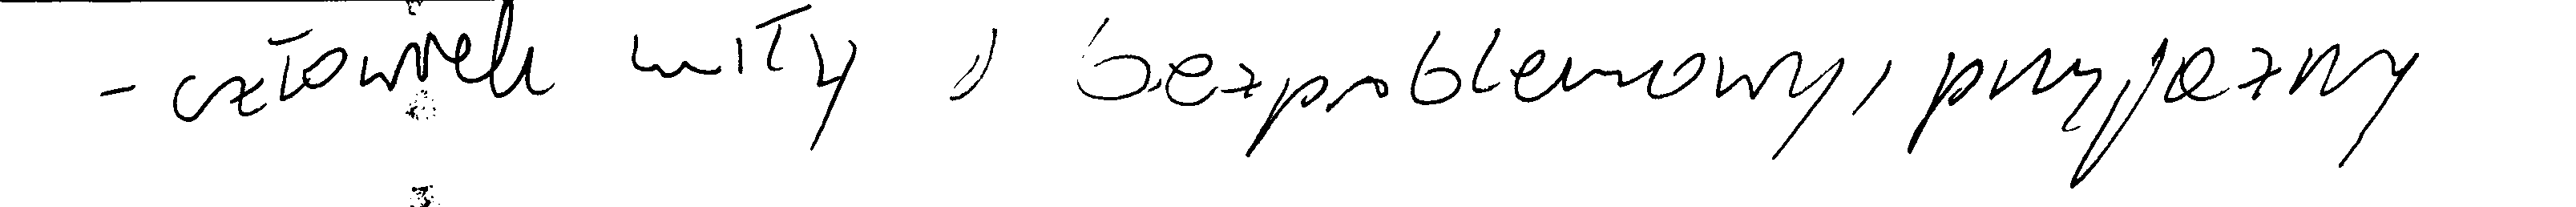 - człowiek miły, bezproblemowy, przyjazny